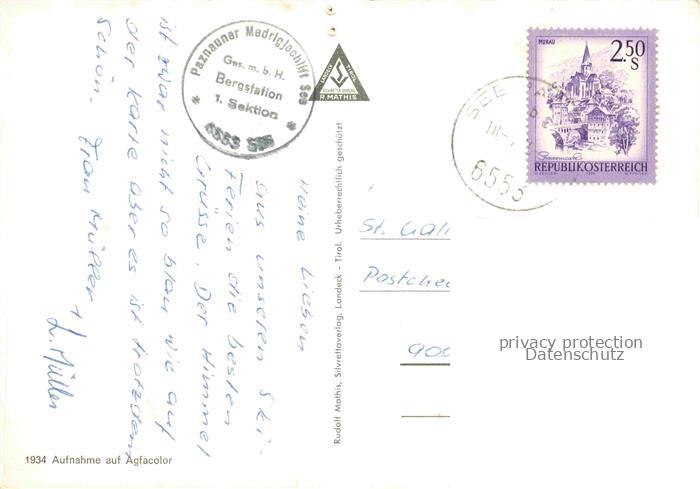 Paznauner Medrigjochlift See
Ges. m. b. H.
Bergstation
1. Sektion
* 6553 See *
LANDECK TIROL
SILVRETTA-VERLAG
R. MATHIS
MURAU
2.50
S
REPUBLIK ÖSTERREICH
SEE
18.
6553
Meine Lieben
aus unseren Ski-
Ferien die besten
Grüsse. Der Himmel
ist zwar nicht so blau wie auf
der Karte aber es ist trotzdem
schön. Frau Müller +
L. Müller
Rudolf Mathis, Silvrettaverlag, Landeck - Tirol. Urheberrechtlich geschützt!
St. Gall
Postchec
900
privacy protection
Datenschutz
1934 Aufnahme auf Agfacolor